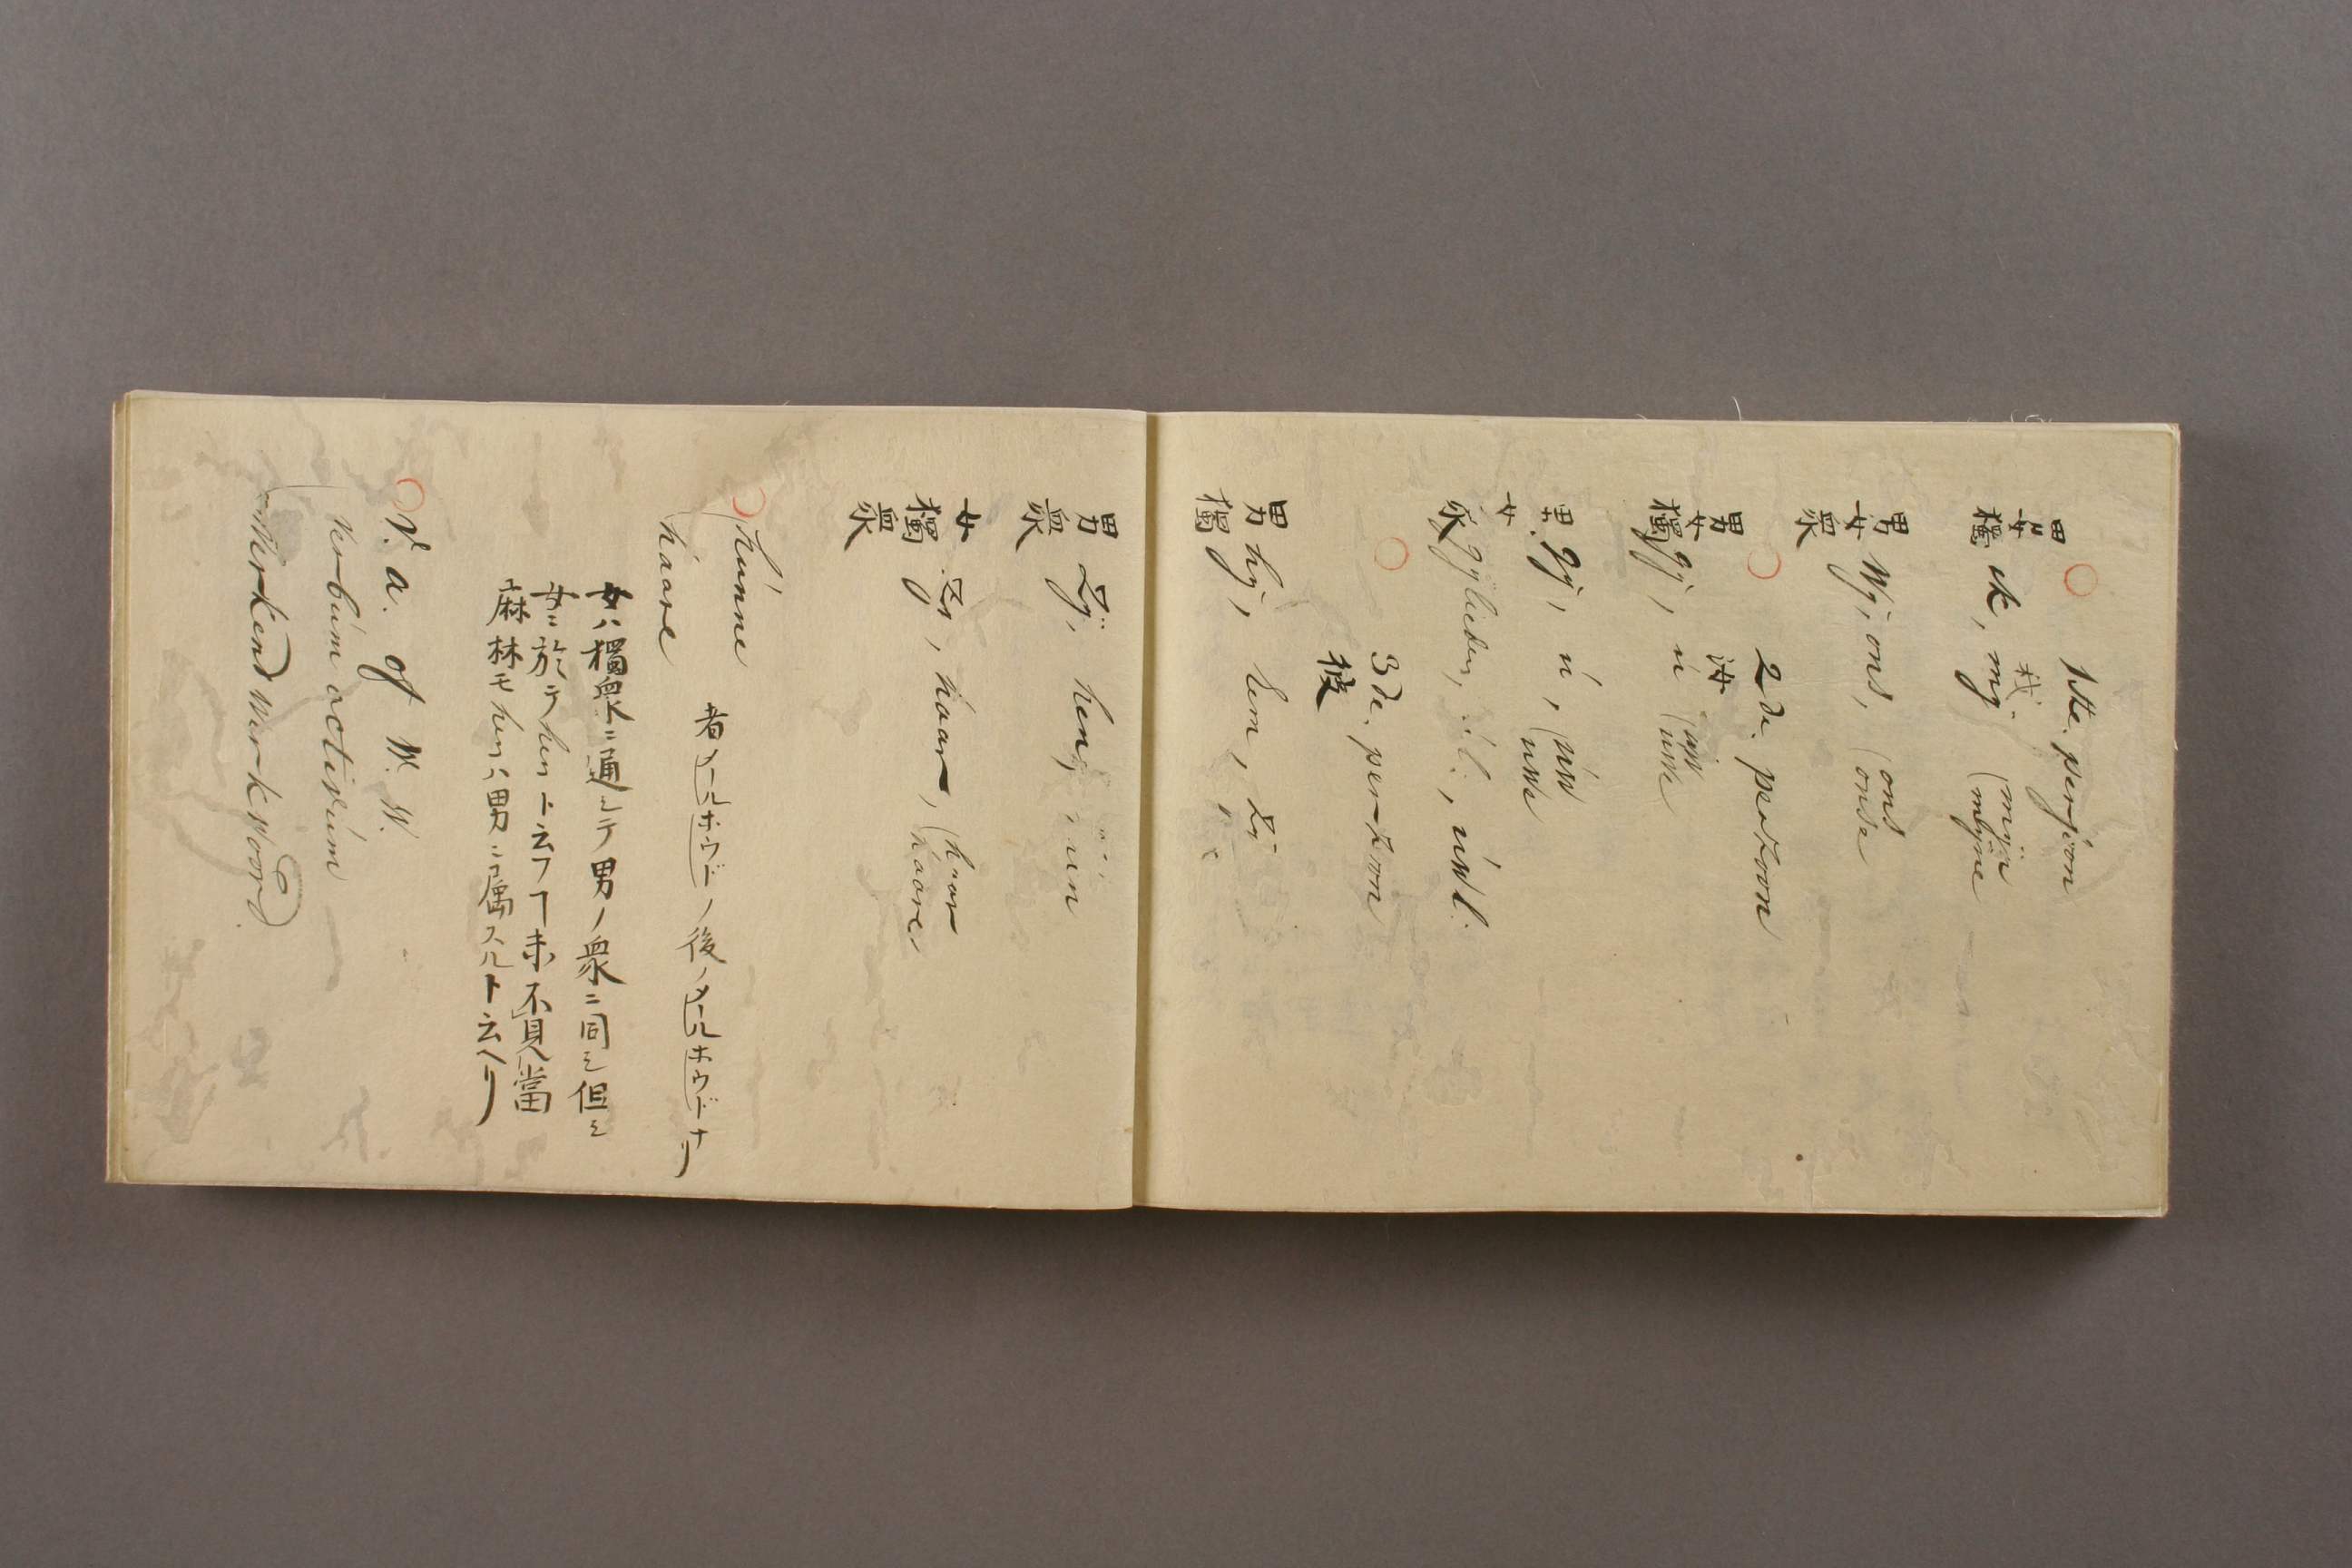 1ste. persoon
男女獨 ik, mij. 我 (mijn
(mijne
男女衆 Wij, ons, (ons
(onse
2de. persoon
汝
男女獨 gij, ú (úw
(uwe
男女 gij, ú, (úw
(uwe
衆 gijlieden, úl., úwl.
3de. persoon
彼
男獨 hij, hem, zij
男衆 Zij, hen,
女獨衆 Zij, haar, (haar
(haare
húnne
haare
者メールホウドノ後ノメールホウドナリ
女ハ獨衆ニ通シテ男ノ衆ニ同シ但シ
女ニ於テ hen ト云フコ未不見當
麻林モ hen ハ男ニ属スルト云ヘリ
V. a. of W. W.
Verbúm activúm
Werkend Werkwoord.